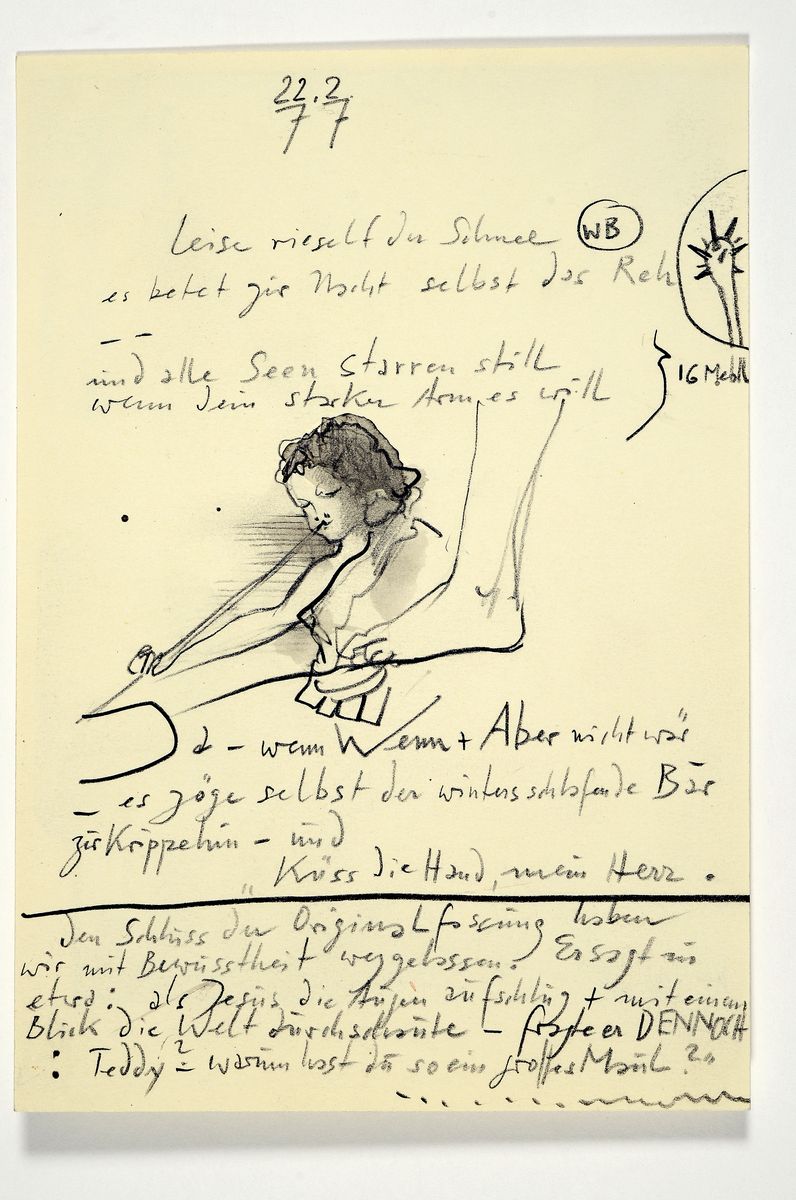 22.2.
77
Leise rieselt der Schnee
WB
es betet zur Nacht selbst das Reh
– –
und alle Seen starren still
wenn dein starker Arm es will
16 Mebll
Ja – wenn Wenn + Aber nicht wär
– es zöge selbst der winterschlafende Bär
zur Krippe hin – und
" Küss die Hand, mein Herr .
Den Schluss der Originalfassung haben
wir mit Bewusstheit weggelassen. Er sagt uns
etwa: als Jesus die Augen aufschlug + mit einem
Blick die Welt durchschaute – fragte er DENNOCH
: Teddy – warum hast du so ein großes Maul ?"